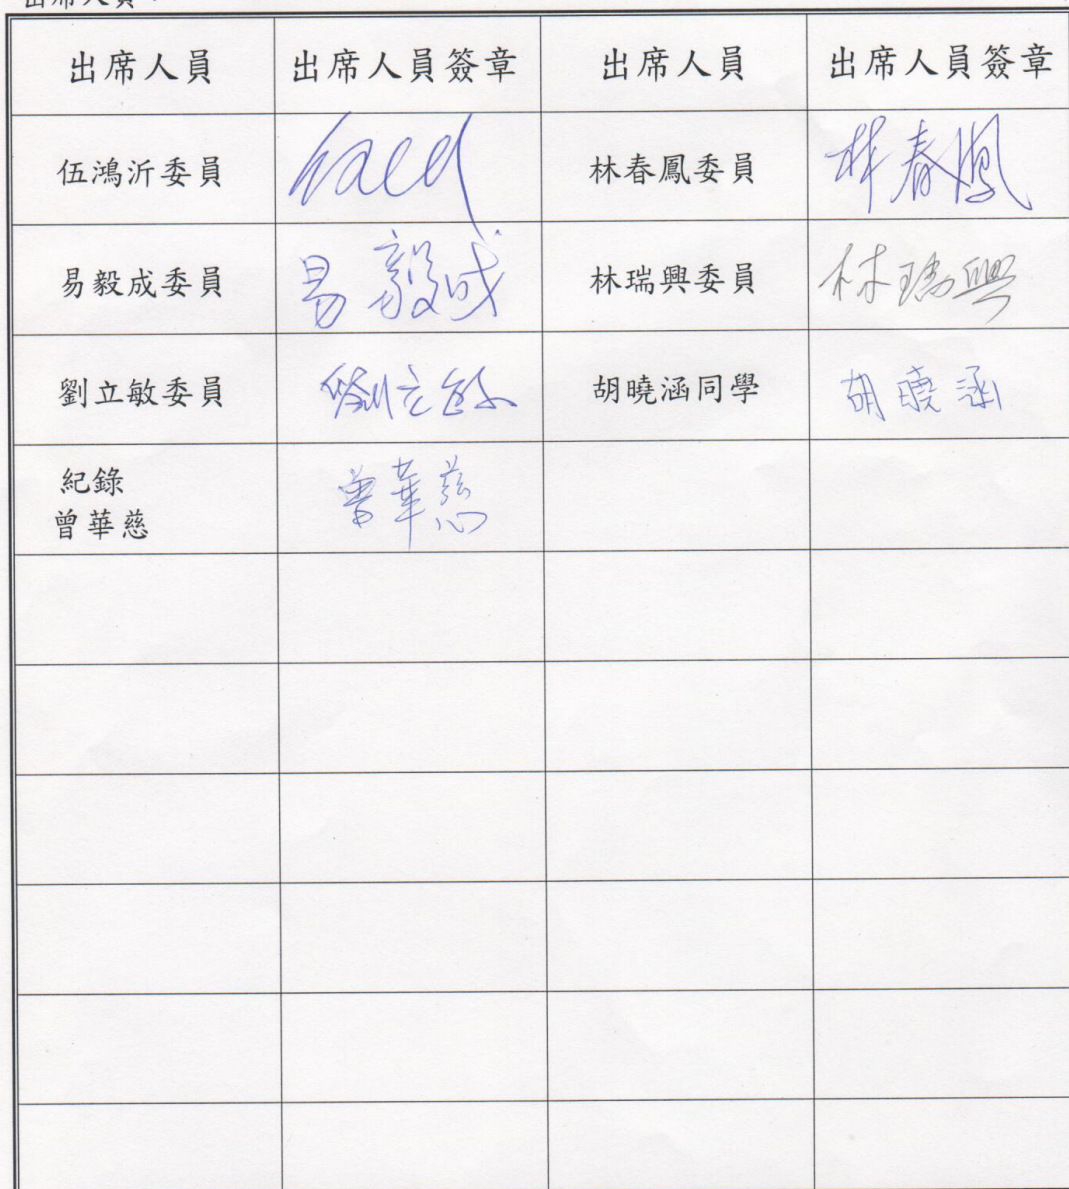 出席人員：
出席人員 出席人員簽章 出席人員 出席人員簽章
伍鴻沂委員 林春鳳委員 林春鳳
易毅成委員 易毅成 林瑞興委員 林瑞興
劉立敏委員 劉立敏 胡曉涵同學 胡曉涵
紀錄
曾華慈 曾華慈